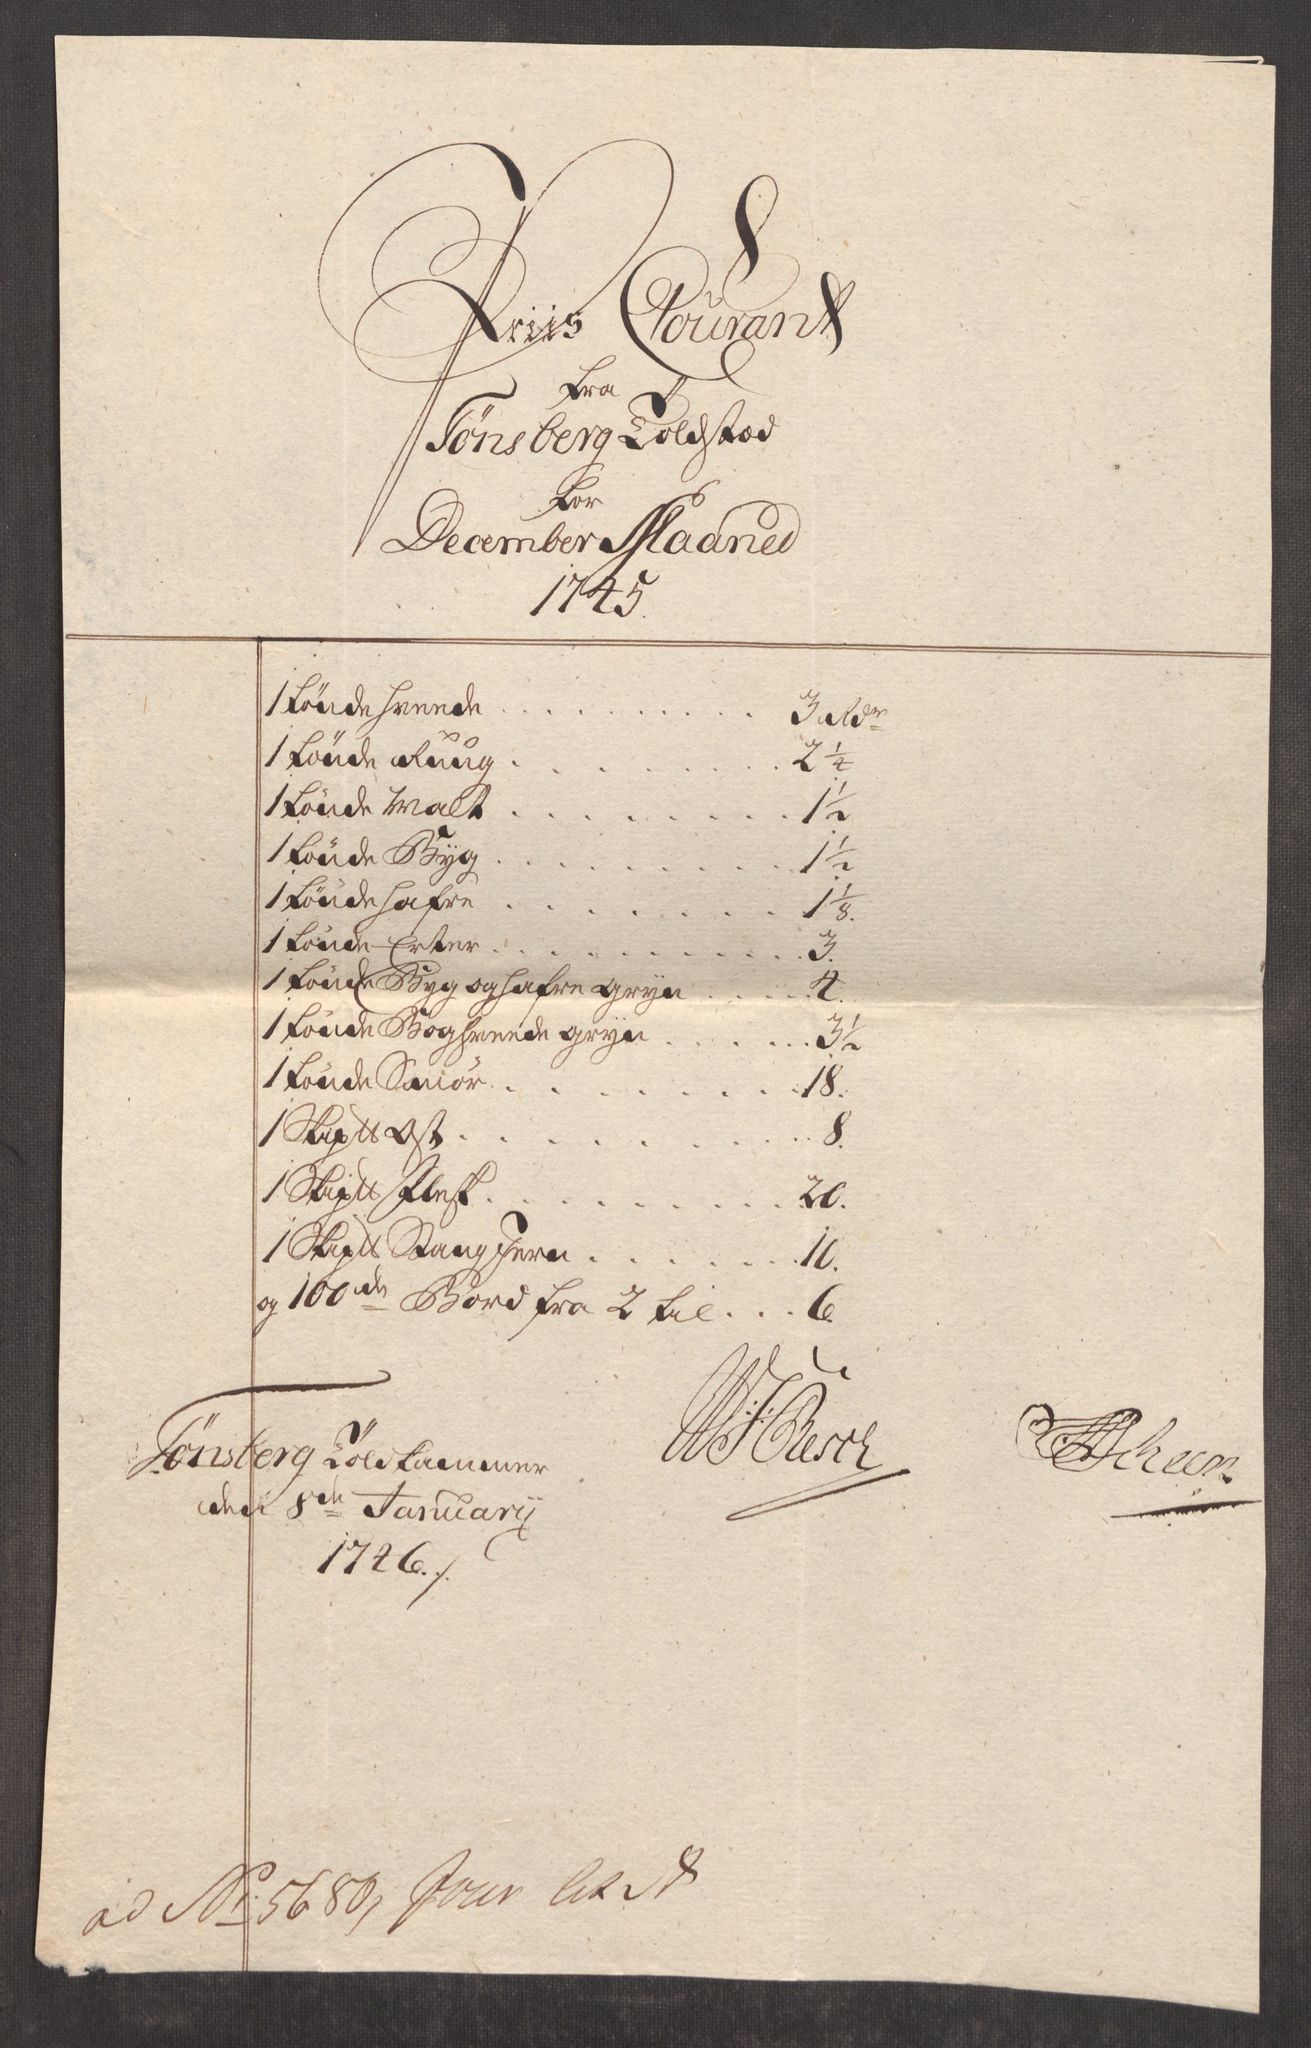 Priis Courant
fra
Tönsberg Toldstæd
for
December Maaned
1745.
1 tönde hveede . . . . . . . . . . 3 Rdr
1 tönde Ruug . . . . . . . . 2 1/4
1 tönde Malt . . . . . . . . 1 1/2
1 tönde Byg . . . . . . . . . 1 1/2
1 tönde hafre . . . . . . . 1 1/8.
1 tönde Erter . . . . . . . . . . . 3.
1 tönde Byg og hafre gryn . . . . . 4.
1 tönde Boghveede gryn . . . . . . 3 1/2
1 tönde Smör . . . . . . . . 18.
1 Skipll Ost . . . . . . . . . . 8.
1 Skipll Flesk . . . . . . . . . 20.
1 Skipll Stang Jern . . . . . . 10.
og 100de Bord fra 2 til . . . 6
Tönsberg Toldkammer
den 8de January
1746./.
ad No: 5680, Jour lit